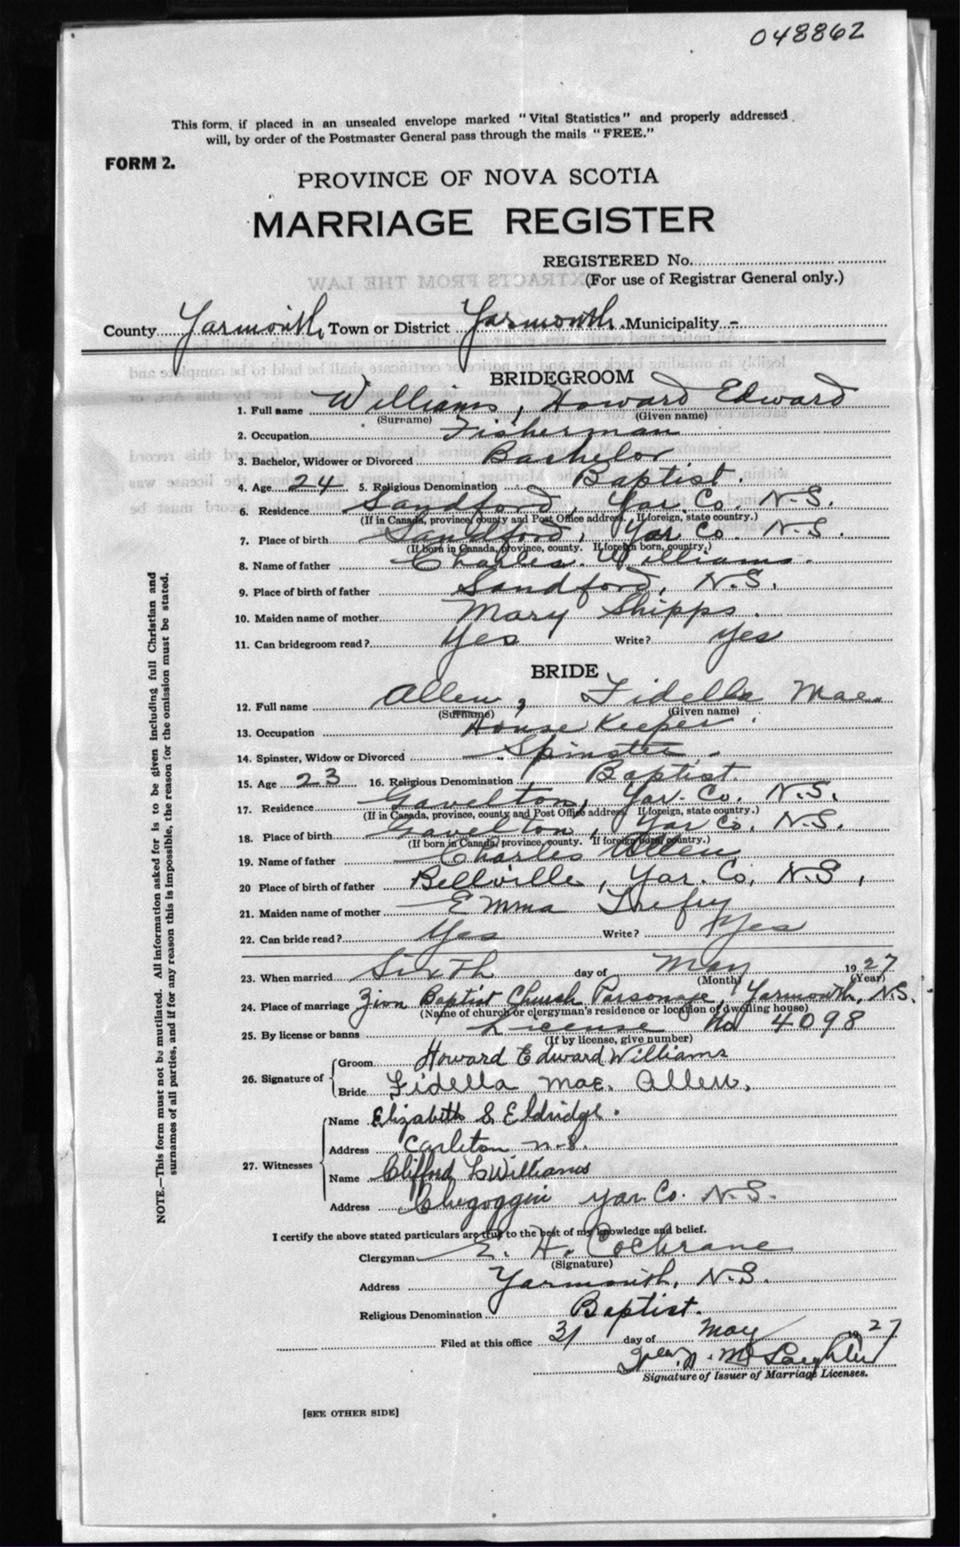 048862
This form, if placed in an unsealed envelope marked "Vital Statistics" and properly addressed
will, by order of the Postmaster General pass through the mails "FREE."
FORM 2.
PROVINCE OF NOVA SCOTIA
MARRIAGE REGISTER
REGISTERED No.
(For use of Registrar General only.)
County Yarmouth, Town or District Yarmouth. Municipality -
BRIDEGROOM
1. Full name Williams, Howard Edward
(Surname) (Given name)
2. Occupation Fisherman
3. Bachelor, Widower or Divorced Bachelor
4. Age 24 5. Religious Denomination Baptist.
6. Residence Sandford, Yar. Co. N.S.
(If in Canada, province, county and Post Office address. If foreign, state country.)
7. Place of birth Sandford, Yar Co. N.S.
(If born in Canada, province, county. If foreign born, country.)
8. Name of father Charles. Williams.
9. Place of birth of father Sandford, N.S.
10. Maiden name of mother Mary Shipps.
11. Can bridegroom read? Yes Write? Yes
BRIDE
12. Full name Allen, Fidella Mae.
(Surname) (Given name)
13. Occupation House Keeper.
14. Spinster, Widow or Divorced Spinster.
15. Age 23 16. Religious Denomination Baptist.
17. Residence Gavelton, Yar. Co. N.S.
(If in Canada, province, county and Post Office address If foreign, state country.)
18. Place of birth Gavelton, Yar Co. N.S.
(If born in Canada, province, county. If foreign born, country.)
19. Name of father Charles Allen
20 Place of birth of father Bellville, Yar. Co, N.S,
21. Maiden name of mother Emma Trefry
22. Can bride read? Yes Write? Yes
23. When married Sixth day of May 1927
(Month) (Year)
24. Place of marriage Zion Baptist Church Parsonage, Yarmouth, N.S.
(Name of church or clergyman's residence or location of dwelling house)
25. By license or banns License No 4098
(If by license, give number)
26. Signature of Groom Howard Edward Williams
Bride Fidella Mae. Allen.
27. Witnesses Name Elizabeth S Eldridge.
Address Carleton N.S.
Name Clifford L Williams
Address Chegoggin Yar. Co. N.S.
I certify the above stated particulars are true to the best of my knowledge and belief.
Clergyman E. H. Cochrane
(Signature)
Address Yarmouth, N.S.
Religious Denomination Baptist.
Filed at this office 31 day of May 1927
McLaughlin
Signature of Issuer of Marriage Licenses.
[SEE OTHER SIDE]
NOTE.—This form must not be mutilated. All information asked for is to be given including full Christian and
surnames of all parties, and if for any reason this is impossible, the reason for the omission must be stated.